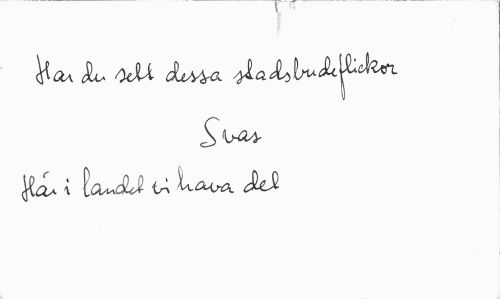 Har du sett dessa stadsbudeflickor
Svar
Här i landet vi hava det